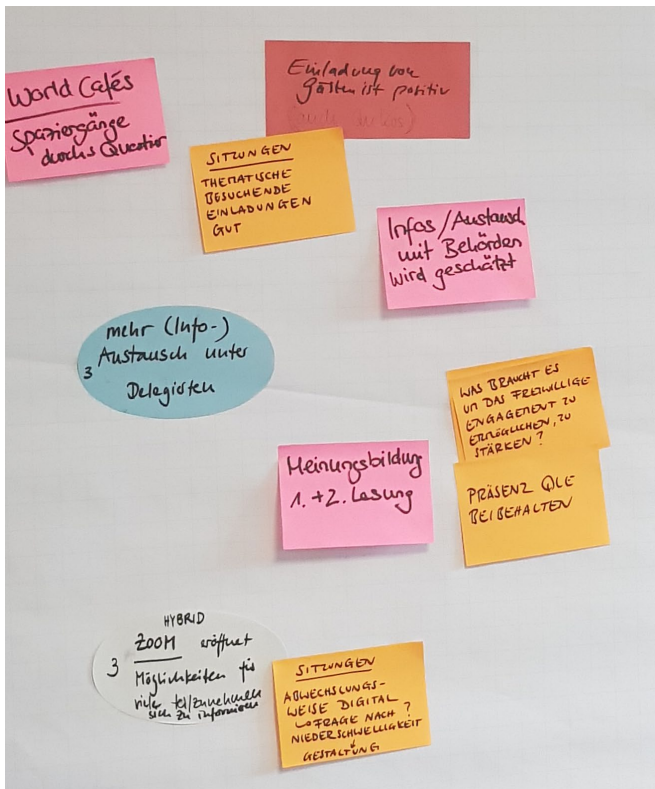 World Cafés
Spaziergänge
durchs Quartier
Einladung von
Gästen ist positiv
SITZUNGEN
THEMATISCHE
BESUCHENDE
EINLADUNGEN
GUT
Infos/Austausch
mit Behörden
wird geschätzt
mehr (Info-)
3 Austausch unter
Delegierten
WAS BRAUCHT ES
UM DAS FREIWILLIGE
ENGAGEMENT ZU
ERMÖGLICHEN, ZU
STÄRKEN?
Meinungsbildung
1. + 2. Lesung
PRÄSENZ QLE
BEIBEHALTEN
HYBRID
ZOOM eröffnet
3 Möglichkeiten für
viele teilzunehmen
sich zu informieren
SITZUNGEN
ABWECHSLUNGS-
WEISE DIGITAL
↳ FRAGE NACH ?
NIEDERSCHWELLIGKEIT
GESTALTUNG